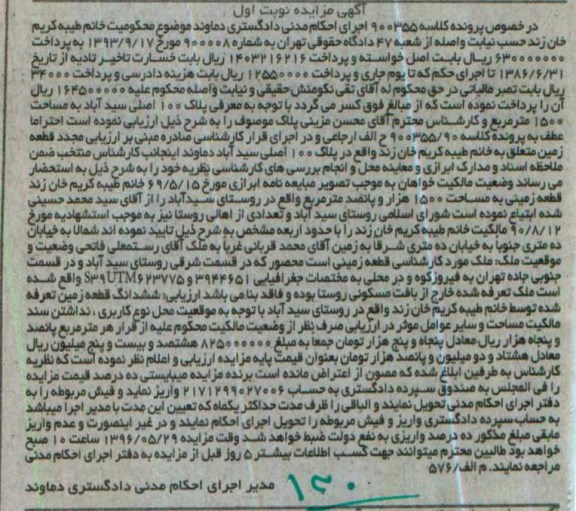 آگهی مزایده نوبت اول
در خصوص پرونده کلاسه ۹۰۰۳۵۵ اجرای احکام مدنی دادگستری دماوند موضوع محکومیت خانم طیبه کریم
خان زند حسب نیابت واصله از شعبه ۴۷ دادگاه حقوقی تهران به شماره ۹۰۰۰۰۸ مورخ ۱۳۹۳/۹/۱۷ به پرداخت
۶۳۰۰۰۰۰۰۰ ریال بابت اصل خواسته و پرداخت ۱۴۰۳۲۱۶۲۱۶ ریال بابت خسارت تاخیر تادیه از تاریخ
۱۳۸۶/۶/۳۱ تا اجرای حکم که تا یوم جاری و پرداخت ۱۲۵۵۰۰۰۰ ریال بابت هزینه دادرسی و پرداخت ۳۴۰۰۰
ریال بابت تمبر مالیاتی در حق محکوم له آقای تقی نکومنش حقیقی و نیابت واصله محکوم علیه ۱۶۴۵۰۰۰۰۰ ریال
آن را پرداخت نموده است که از مبالغ فوق کسر می گردد با توجه به معرفی پلاک ۱۰۰ اصلی سید آباد به مساحت
۱۵۰۰ مترمربع و کارشناس محترم آقای محسن مزینی پلاک موصوف را به شرح ذیل ارزیابی نموده است احتراما
عطف به پرونده کلاسه ۹۰۰۳۵۵/۹۰ ح الف ارجاعی و در اجرای قرار کارشناسی صادره مبنی بر ارزیابی مجدد قطعه
زمین متعلق به خانم طیبه کریم خان زند واقع در پلاک ۱۰۰ اصلی سید آباد دماوند اینجانب کارشناس منتخب ضمن
ملاحظه اسناد و مدارک ابرازی و معاینه محل و انجام بررسی های کارشناسی نظریه خود را به شرح ذیل به استحضار
می رساند وضعیت مالکیت خواهان به موجب تصویر مبایعه نامه ابرازی مورخ ۶۹/۵/۱۵ خانم طیبه کریم خان زند
قطعه زمینی به مساحت ۱۵۰۰ هزار و پانصد مترمربع واقع در روستای سیدآباد را از آقای سید محمد حسینی
شده ابتیاع نموده است شورای اسلامی روستای سید آباد و تعدادی از اهالی روستا نیز به موجب استشهادیه مورخ
۹۰/۸/۱۲ مالکیت خانم طیبه کریم خان زند را با حدود اربعه مشخص به شرح ذیل تایید نموده اند شمالا به خیابان
ده متری جنوبا به خیابان ده متری شرقا به زمین آقای محمد قربانی غربا به ملک آقای رستمعلی فاتحی وضعیت و
موقعیت ملک: ملک مورد کارشناسی قطعه زمینی است محصور که در قسمت شرقی روستای سید آباد و در قسمت
جنوبی جاده تهران به فیروزکوه و در محلی به مختصات جغرافیایی ۳۹۴۴۶۵۱ و S۳۹UTM۶۲۳۷۷۵ واقع شده
است ملک تعرفه شده خارج از بافت مسکونی روستا بوده و فاقد بنا می باشد ارزیابی: ششدانگ قطعه زمین تعرفه
شده توسط خانم طیبه کریم خان زند واقع در روستای سید آباد با توجه به موقعیت محل نوع کاربری ، نداشتن سند
مالکیت مساحت و سایر عوامل موثر در ارزیابی صرف نظر از وضعیت مالکیت محکوم علیه از قرار هر مترمربع پانصد
و پنجاه هزار ریال معادل پنجاه و پنج هزار تومان جمعا به مبلغ ۸۲۵۰۰۰۰۰۰ هشتصد و بیست و پنج میلیون ریال
معادل هشتاد و دو میلیون و پانصد هزار تومان بعنوان قیمت پایه مزایده ارزیابی و اعلام نظر نموده است که نظریه
کارشناس به طرفین ابلاغ شده که مصون از اعتراض مانده است برنده مزایده میبایستی ده درصد قیمت مزایده
را فی المجلس به صندوق سپرده دادگستری به حساب ۲۱۷۱۲۹۹۰۲۷۰۰۶ واریز نماید و فیش مربوطه را به
دفتر اجرای احکام مدنی تحویل نمایند و الباقی را ظرف مدت حداکثر یکماه که تعیین این مدت با مدیر اجرا میباشد
به حساب سپرده دادگستری واریز و فیش مربوطه را تحویل اجرای احکام نمایند و در غیر اینصورت و عدم واریز
مابقی مبلغ مذکور ده درصد واریزی به نفع دولت ضبط خواهد شد وقت مزایده ۱۳۹۶/۰۵/۲۹ ساعت ۱۰ صبح
خواهد بود طالبین محترم میتوانند جهت کسب اطلاعات بیشتر ۵ روز قبل از مزایده به دفتر اجرای احکام مدنی
مراجعه نمایند. م الف/۵۷۶
مدیر اجرای احکام مدنی دادگستری دماوند
۱۳۰